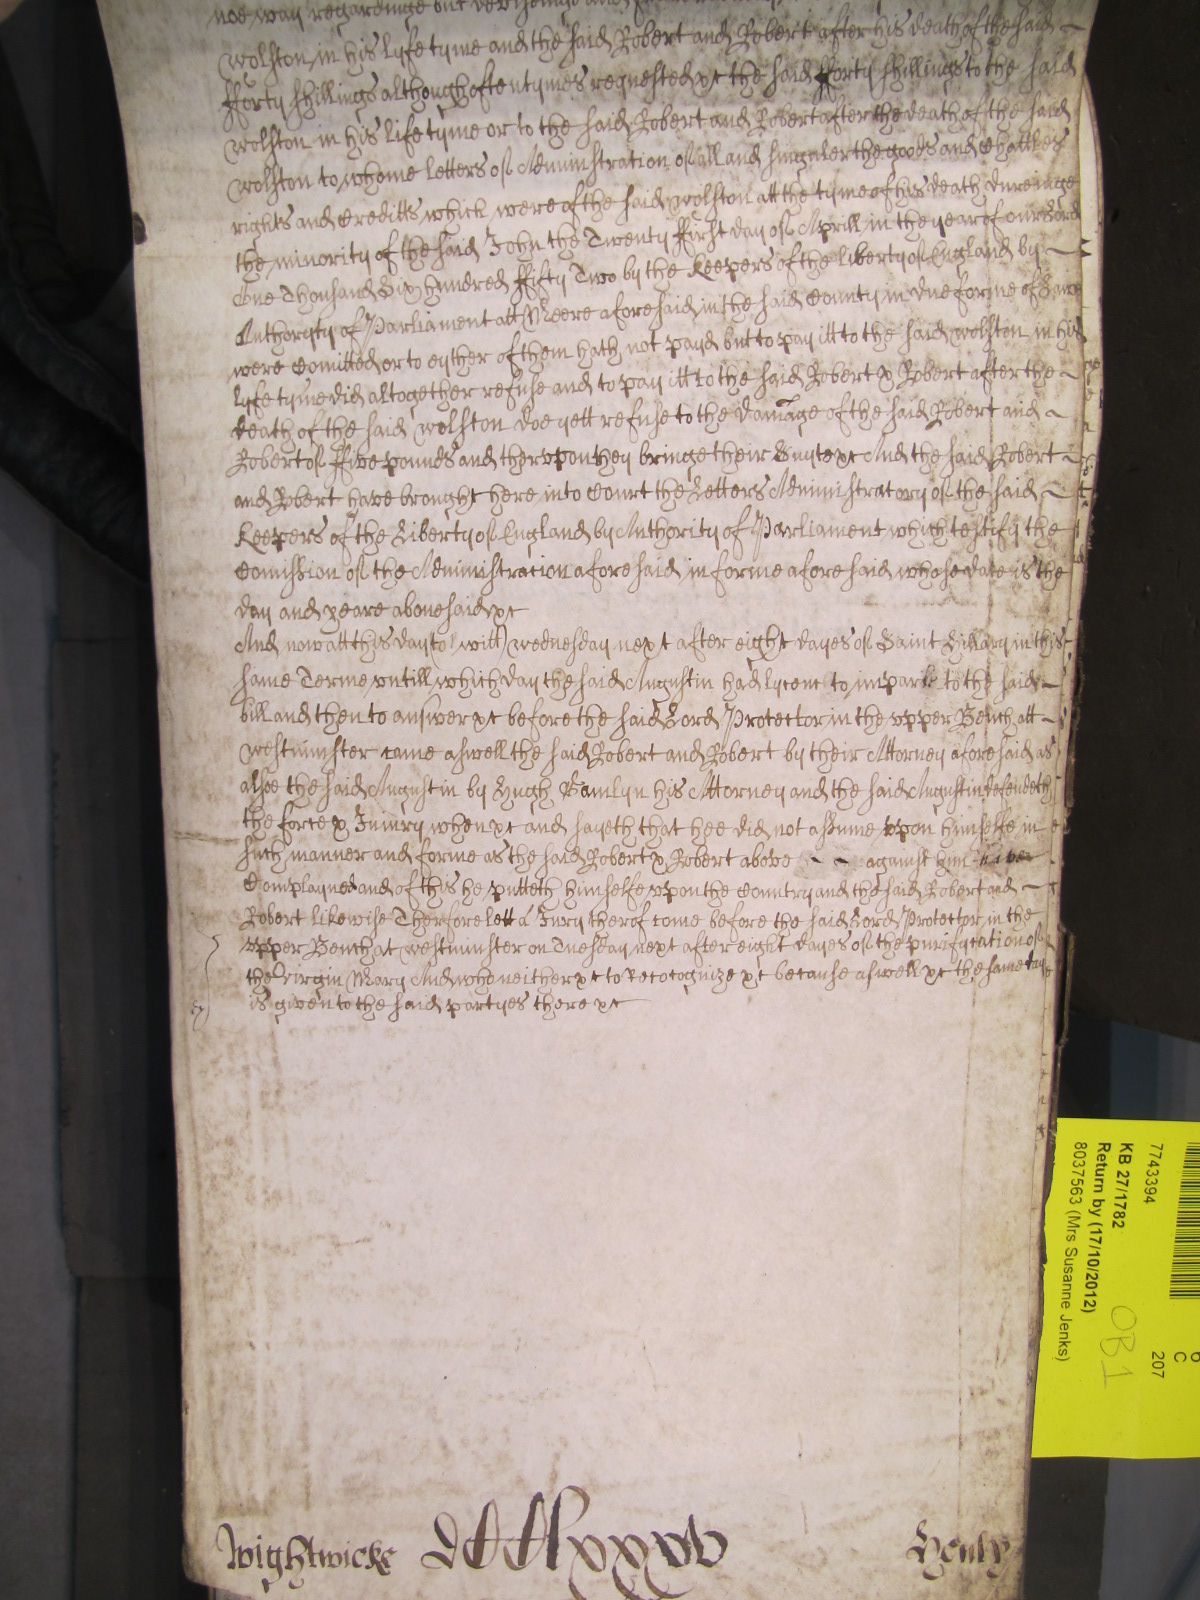 noe way regardinge but devisinge and
Wolston in his lyfe tyme and the said Robert and Robert after his death of the said
fforty shillings although oftentymes requested &c the said fforty shillings to the said
Wolston in his life tyme or to the said Robert and Robert after the death of the said
Wolston to whome letters of Administration of all and singuler the goods and Chattles
rights and Creditts which were of the said Wolston att the tyme of his death dureinge
the minority of the said John the Twenty ffirst day of Aprill in the year of our Lord
One Thousand Six hundred ffifty Two by the Keepers of the liberty of England by
Authority of Parliament att Meere aforesaid in the said County in due forme of Lawe
were Comitted or to eyther of them hath not payd but to pay itt to the said Wolston in his
lyfe tyme did altogether refuse and to pay itt to the said Robert & Robert after the
death of the said Wolston doe yett refuse to the damage of the said Robert and
Robert of ffive pounds and therupon they bringe their Suyte &c And the said Robert
and Robert have brought here into Court the Letters Administratory of the said
Keepers of the Liberty of England by Authority of Parliament which testify the
Comission of the Administration aforesaid in forme aforesaid whose date is the
day and yeare abovesaid &c
And now att this day to witt) Wednesday next after eight dayes of Saint Hillary in this
same Terme untill which day the said Augustin had lycence to imparle to the said
bill and then to answer &c before the said Lord Protector in the upper Bench att
Westminster came aswell the said Robert and Robert by their Attorney aforesaid as
alsoe the said Augustin by Hugh Hamlyn his Attorney and the said Augustin defendeth
the force & Iniury when &c and sayeth that hee did not assume upon himselfe in
such manner and forme as the said Robert & Robert above against him have
Complayned and of this he putteth himselfe upon the Country and the said Robert and
Robert likewise Therfore lett a Iury therof come before the said Lord Protector in the
upper Bench at Westminster on Tuesday next after eight dayes of the purifycation of
the Virgin Mary And who neither &c to Recocognize &c because aswell &c the same day
is given to the said partyes there &c
Wightwicke Dccclxxxv Henly
7743394
KB 27/1782
Return by (17/10/2012)
8037563 (Mrs Susanne Jenks)
OB1
207
C
6